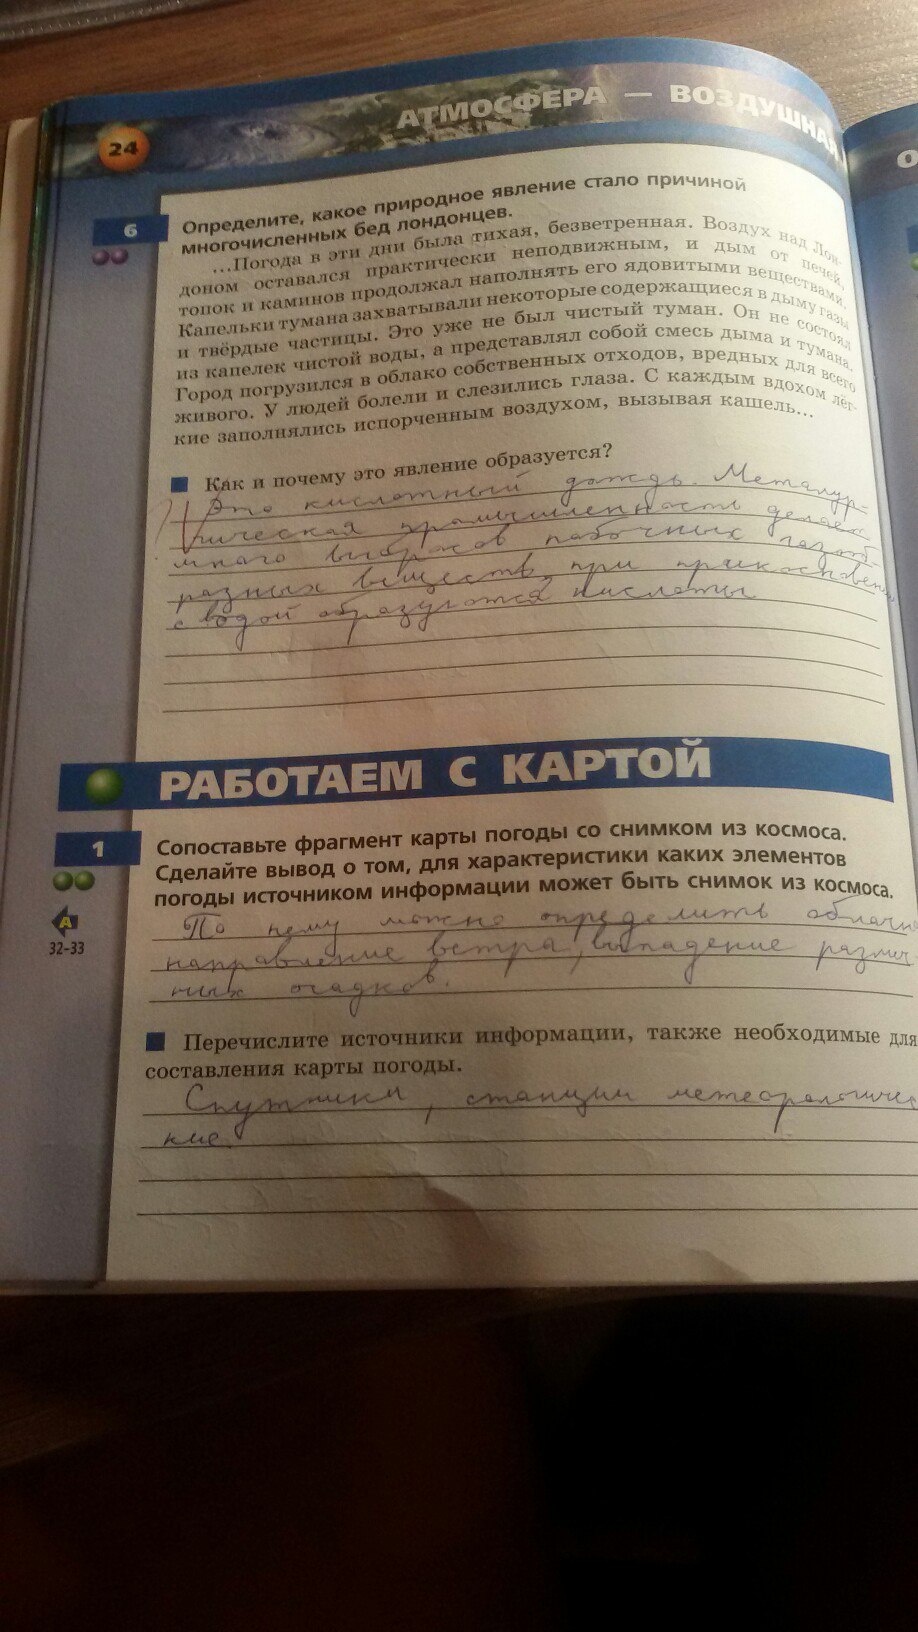 24
АТМОСФЕРА — ВОЗДУШНА
О
6
Определите, какое природное явление стало причиной
многочисленных бед лондонцев.
...Погода в эти дни была тихая, безветренная. Воздух над Лон-
доном оставался практически неподвижным, и дым от печей,
топок и каминов продолжал наполнять его ядовитыми веществами.
Капельки тумана захватывали некоторые содержащиеся в дыму газы
и твёрдые частицы. Это уже не был чистый туман. Он не состоял
из капелек чистой воды, а представлял собой смесь дыма и тумана.
Город погрузился в облако собственных отходов, вредных для всего
живого. У людей болели и слезились глаза. С каждым вдохом лёг-
кие заполнялись испорченным воздухом, вызывая кашель...
Как и почему это явление образуется?
Это кислотный дождь. Металур-
гическая промышленность делает
много выбросов побочных газооб-
разных веществ, при прикосновении
с водой образуются кислоты
РАБОТАЕМ С КАРТОЙ
1
Сопоставьте фрагмент карты погоды со снимком из космоса.
Сделайте вывод о том, для характеристики каких элементов
погоды источником информации может быть снимок из космоса.
А
32-33
По нему можно определить облачн
направление ветра, выпадение различ
ных осадков.
Перечислите источники информации, также необходимые для
составления карты погоды.
Спутники, станции метеорологичес
кие